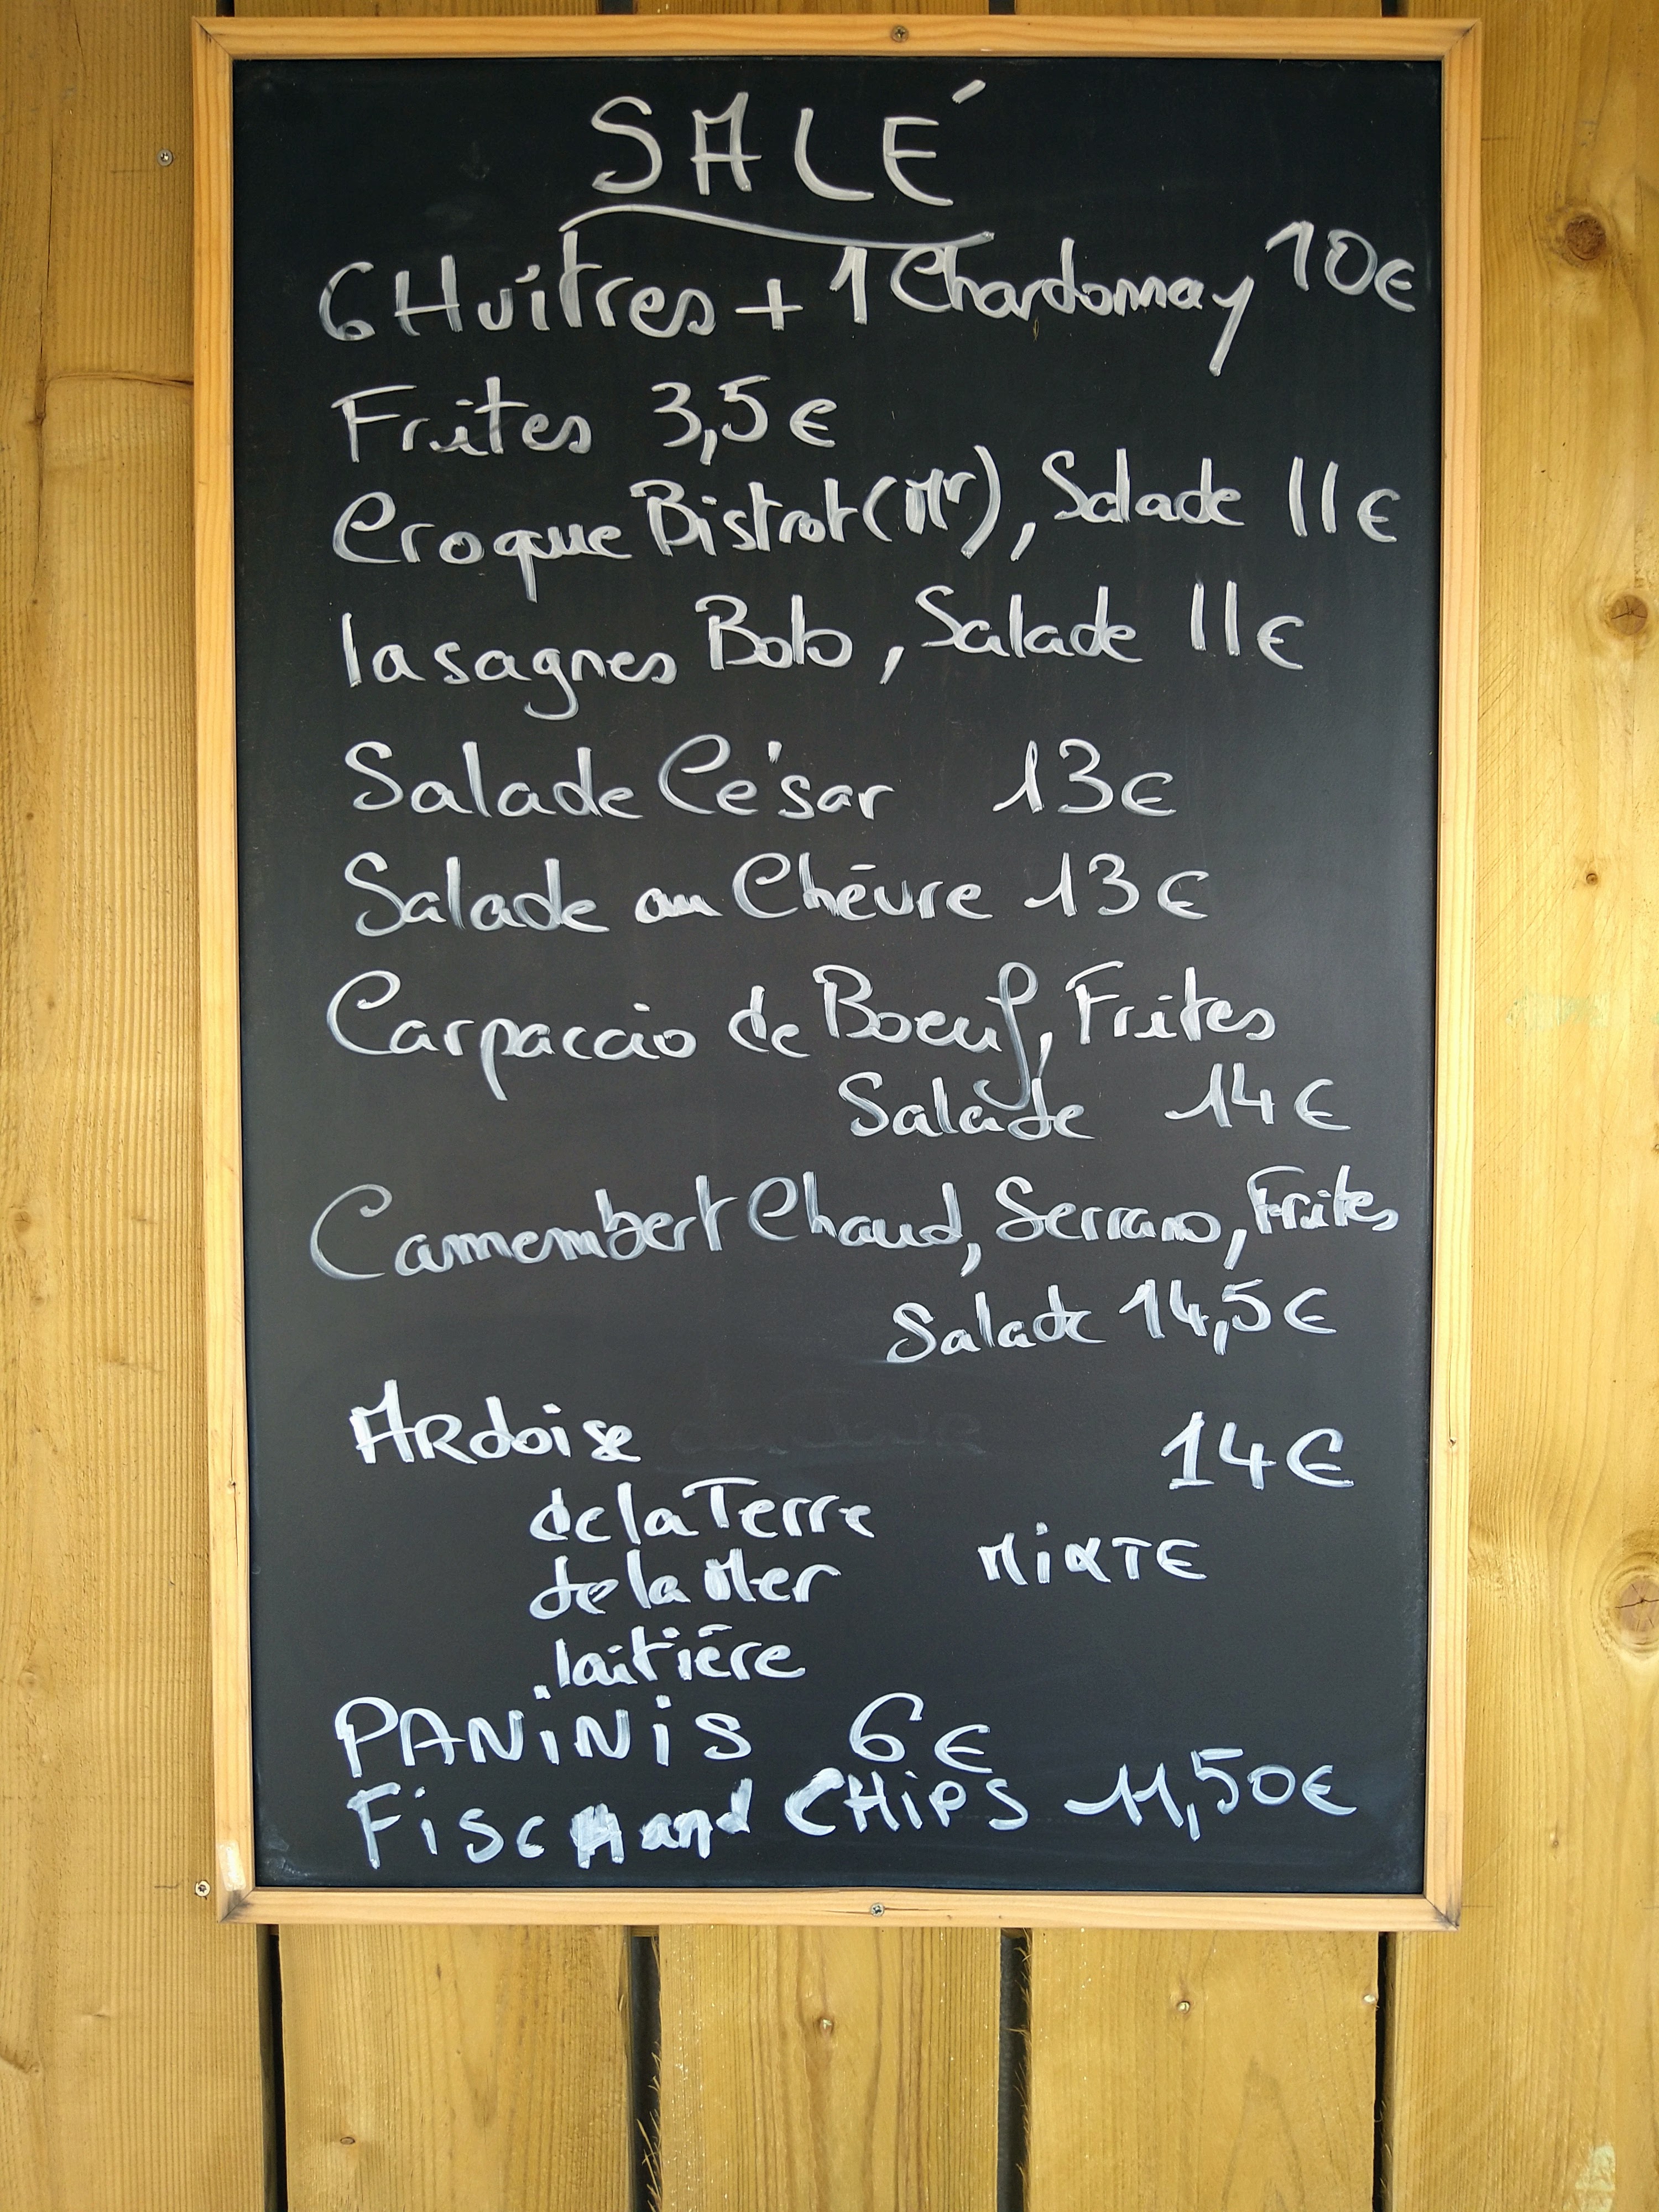 SALÉ
6 Huîtres + 1 Chardonnay 10€
Frites 3,5€
Croque Bistrot (Mr), Salade 11€
lasagnes Bolo, Salade 11€
Salade César 13€
Salade au Chèvre 13€
Carpaccio de Boeuf, Frites
Salade 14€
Camembert Chaud, Serrano, Frites,
Salade 14,5€
ARdoise 14€
de la Terre
de la Mer MiXTE
. laitière
PANiNiS 6€
FiscH and CHiPS 11,50€